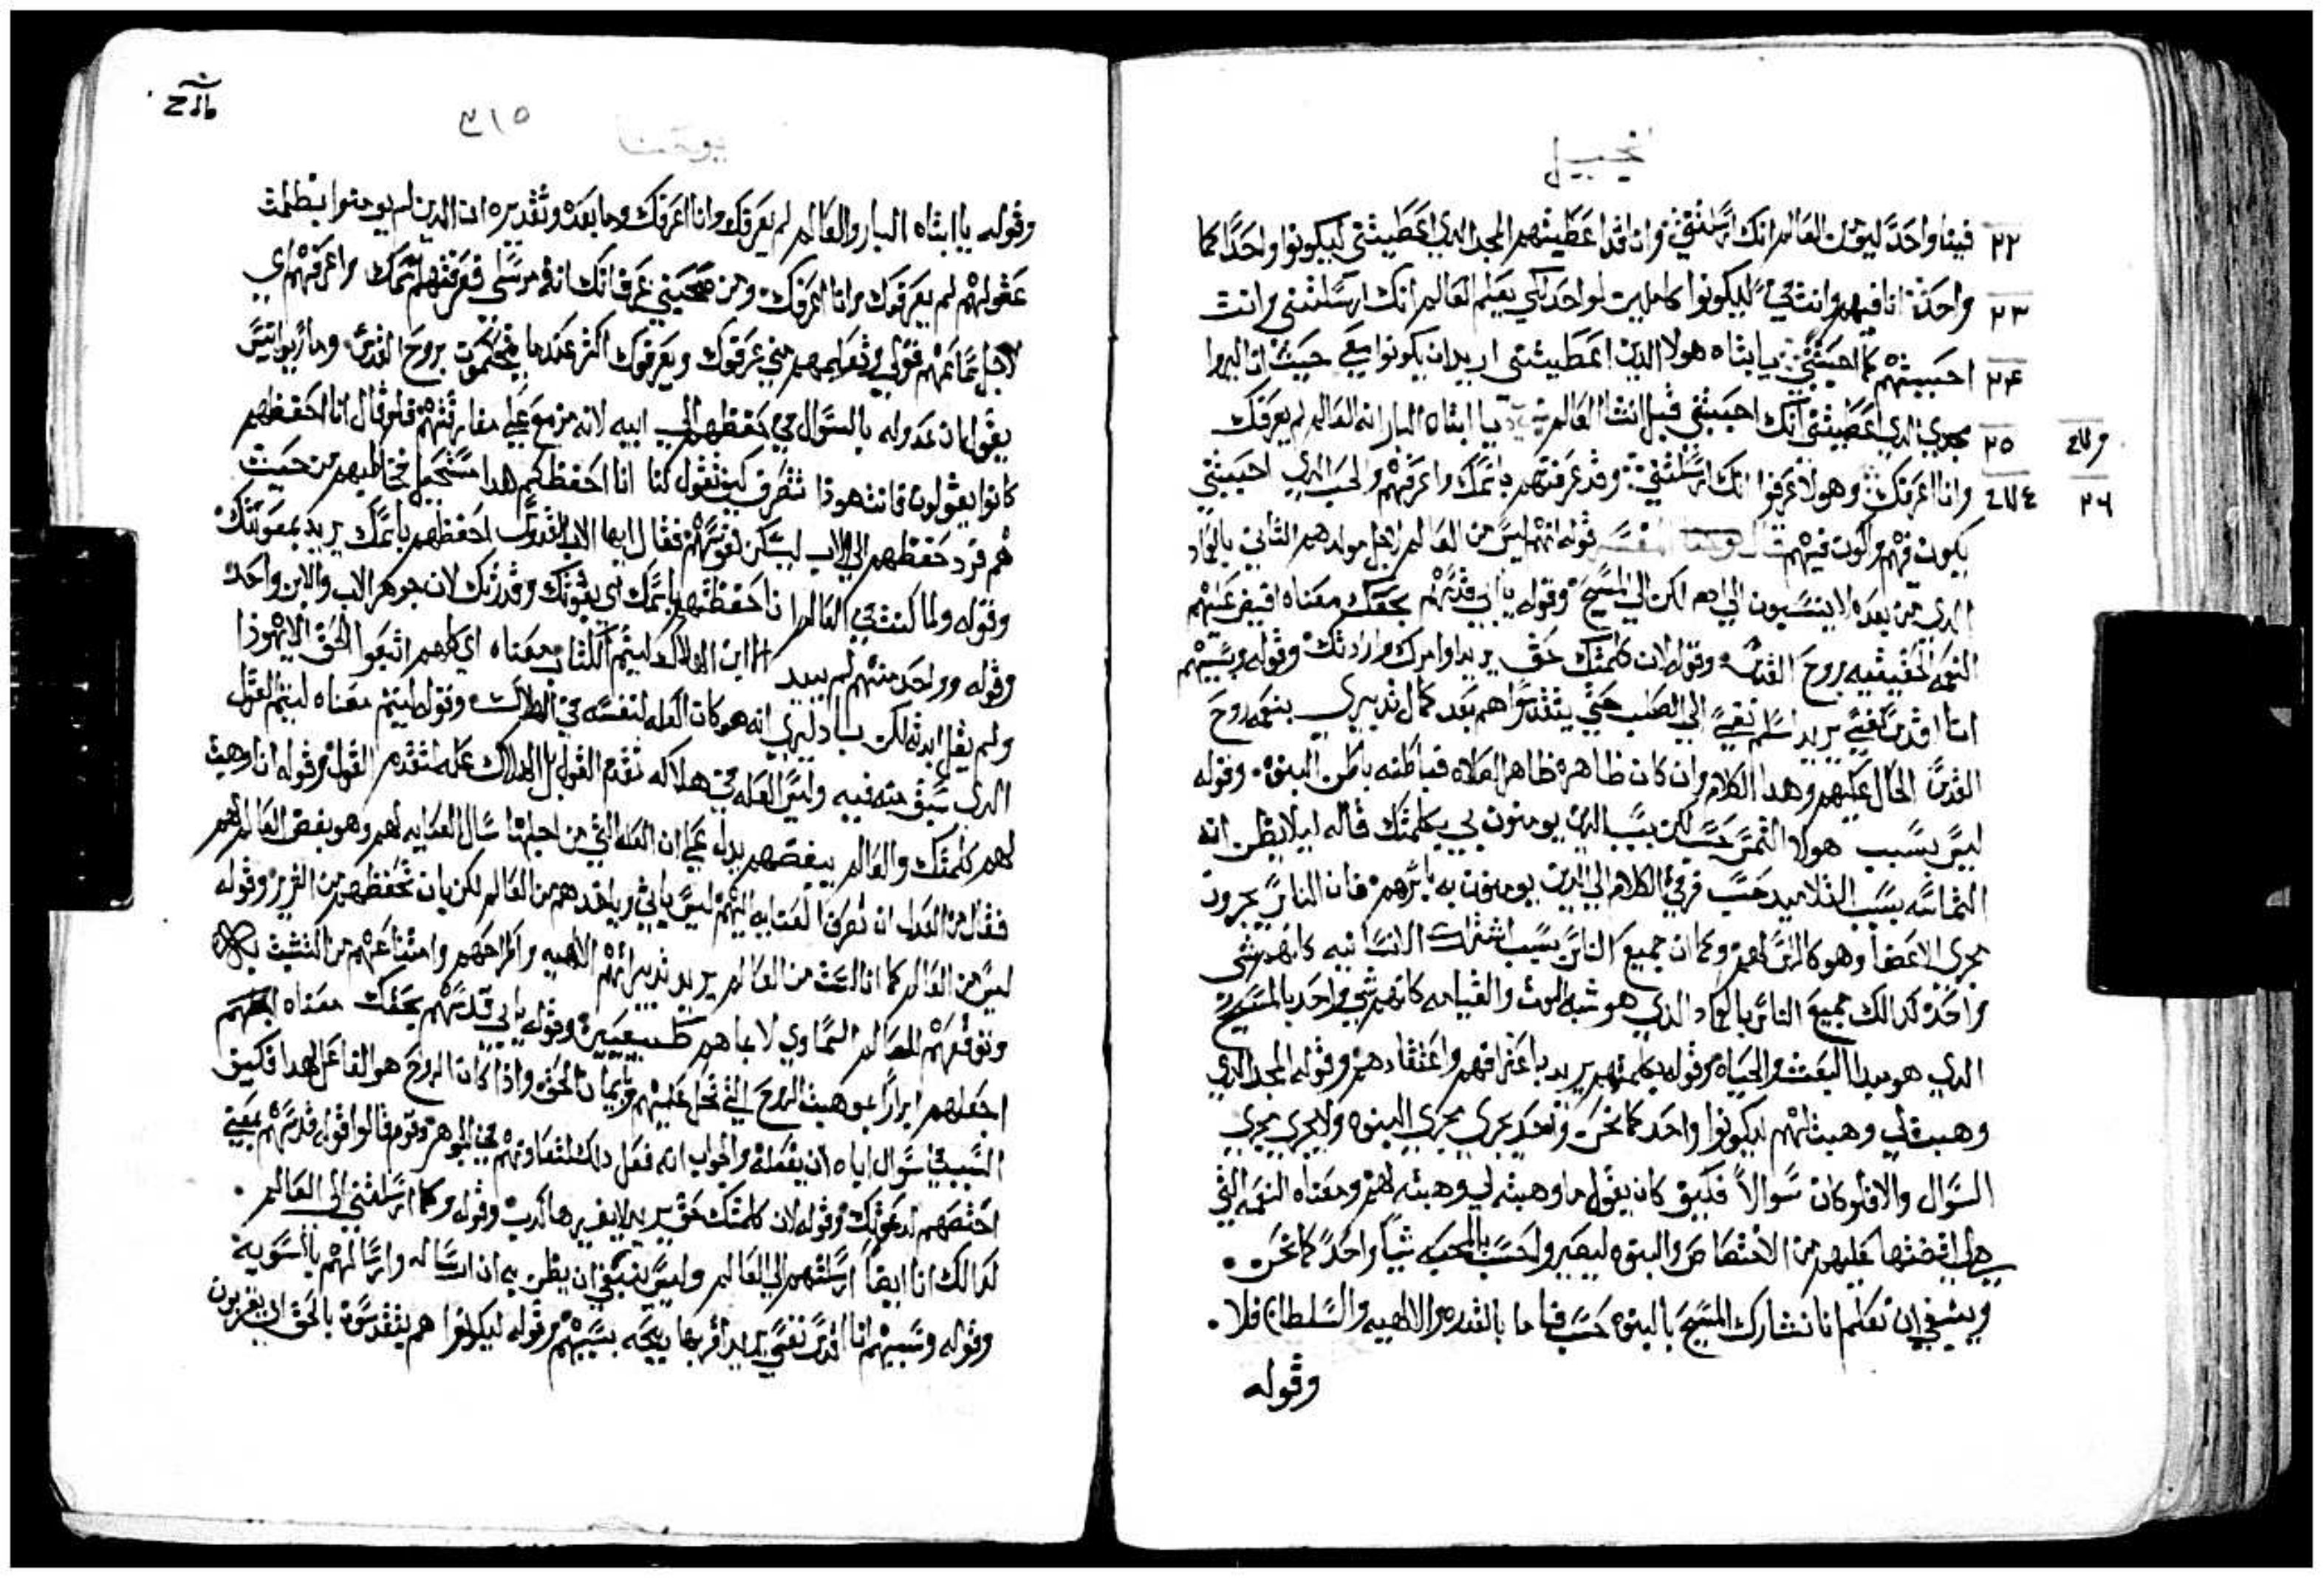 انجيل
٢٢ فينا واحدًا ليومن العالم انك ارسلتني وانا قد اعطيتهم المجد الدي اعطيتني ليكونوا واحدًا كما
٢٣ واحد انا فيهم وانت في ليكونوا كاملين لواحد لكي يعلم العالم انك ارسلتني وانت
٢٤ احببتهم كما احببتني يا ابتاه هولا الدين اعطيتني اريد ان يكونوا معي حيث انا ليروا
٢٥ مجدي الدي اعطيتني انك احببتني قبل انشا العالم يا ابتاه البار ان العالم لم يعرفك
٢٦ وانا اعرفك وهولا عرفوا انك ارسلتني وقد عرفتهم باسمك واعرفهم والحب الدي احببتني
يكون فيهم واكون فيهم قال المفسر قوله انهم ليس من العالم لاجل مولدهم الثاني بالعماد
الدي من بعده لا ينتسبون الي ادم لكن الي المسيح وقوله يا ابي قدسهم بحقك معناه افيض عليهم
النعمه الحقيقيه بروح القدس وقوله لان كلمتك حق يريد اوامرك وارادتك وقوله وبسببهم
انا اقدس نفسي يريد اسلم نفسي الي الصلب حتي يتقدسوا هم بعد كمال تدبيري بنعمه روح
القدس الحال عليهم وهدا الكلام وان كان ظاهره ظاهر الصلاه فباطنه باطن البنوه وقوله
ليس بسبب هولا التمس حسب لكن بسبب الدين يومنون بي بكلمتك قاله ليلا يظن انه
التماسه بسبب التلاميد حسب فرقي الكلام الي الدين يومنون به باسرهم فان الناس يجرون
مجري الاعضا وهو كالراس لهم وكما ان جميع الناس بسبب اشتراك الانسانيه كانهم شي
واحد كدالك جميع الناس بالعماد الدي هو شبه الموت والقيامه كانهم شي واحد بالمسيح
الدي هو مبدا البعث والحياه وقوله بكلمتهم يريد باعترافهم واعتقادهم وقوله المجد الدي
وهبت لي وهبت لهم ليكونوا واحد كما نحن واحد يجري مجري البنوه ولا يجري مجري
السوال والا فلو كان سوالاً فكيف كان يقول ما وهبته لي وهبته لهم ومعناه النعمه التي
هي افضتها عليهم من الاختصاص والبنوه ليصيروا حسب المحبه شياً واحدًا كما نحن
وينبغي ان تعلم انا نشارك المسيح بالبنوه حسب فاما بالقدره والالهيه والسلطان فلا
وقوله
٣١٥
يوحنا
وقوله يا ابتاه البار والعالم لم يعرفك وانا اعرفك وما بعده وتقديره ان الدين لم يومنوا بظلمت
عقولهم لم يعرفوك وانا اعرفك ومن صحبني عرف انك انت مرسلي فعرفتهم اسمك واعرفهم اي
لاجل قولي وتعليمهم مني عرفوك ويعرفوك اكثر عندما بروح القدس وماريوانيس
يقول ان عدوله بالسوال في حفظهم الي ابيه لانه مزمع علي مفارقتهم فلو قال انا احفظهم
كانوا يقولون فانت هودا تنصرف كيف تقول لنا انا احفظكم هدا مستحيل فخاطبهم من حيث
هم فرد حفظهم الي الاب ليسكن نفوسهم فقال ايها الاب القدوس احفظهم باسمك يريد بمعونتك
وقوله ولما كنت في العالم انا حفظتهم باسمك اي بقوتك وقدرتك لان جوهر الاب والابن واحد
وقوله وواحد منهم لم يبيد الا ابن الهلاك ليتم الكتاب معناه اي كلهم اتبعوا الحق الا يهودا
ولم يقل ابدته لكن باد ليري انه هو كان العله لنفسه في الهلاك وقوله ليتم معناه ليتم القول
الدي سبق منه فيه وليس العله في هلاكه تقدم القول بل الهلاك عله لتقدم القول وقوله انا وهبت
لهم كلمتك والعالم يبغضهم يدل علي ان العله التي من اجلها سال العنايه لهم وهو بغض العالم لهم
فقال من العدل ان تصرف العنايه اليهم ليس باني وباخدهم من العالم لكن بان تحفظهم من الشرير وقوله
ليس من العالم كما انا لست من العالم يريد تدبيراتهم الالهيه واطراحهم وامتناعهم من التشبث به
وتوقعهم العالم السماوي لا بما هم طبيعيين وقوله يا ابي قدسهم بحقك معناه اجعلهم
اجعلهم ابرارًا بموهبت الروح التي تحل عليهم وبايمان الحق وادا كان الروح هو الفاعل لهدا فكيف
السبب في سوال اياه ان يفعله والجواب انه فعل دالك لتعاونهم في الجوهر وقوم قالوا قوله قدسهم بمعني
اختصهم لدعوتك وقوله لان كلمتك حق يريد لا يغيرها كدب وقوله وكما ارسلتني الي العالم
كدالك انا ايضاً ارسلتهم الي العالم وليس ينبغي ان يظن به ان ارساله وارسالهم بالسويه
وقوله وبسببهم انا اقدس نفسي يريد اقربها دبيحه بسببهم وقوله ليكونوا هم يتقدسون بالحق اي يقربون